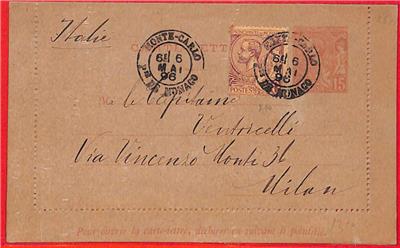 Italie
MONTE-CARLO
6E 6
MAI
96
PTÉ DE MONACO
MONTE-CARLO
6E 6
MAI
96
PTÉ DE MONACO
POSTES
15
M. le Capitaine
Ventricelli
Via Vincenzo Monti 36
Milan
Pour ouvrir la carte-lettre, déchirer en suivant le pointillé.